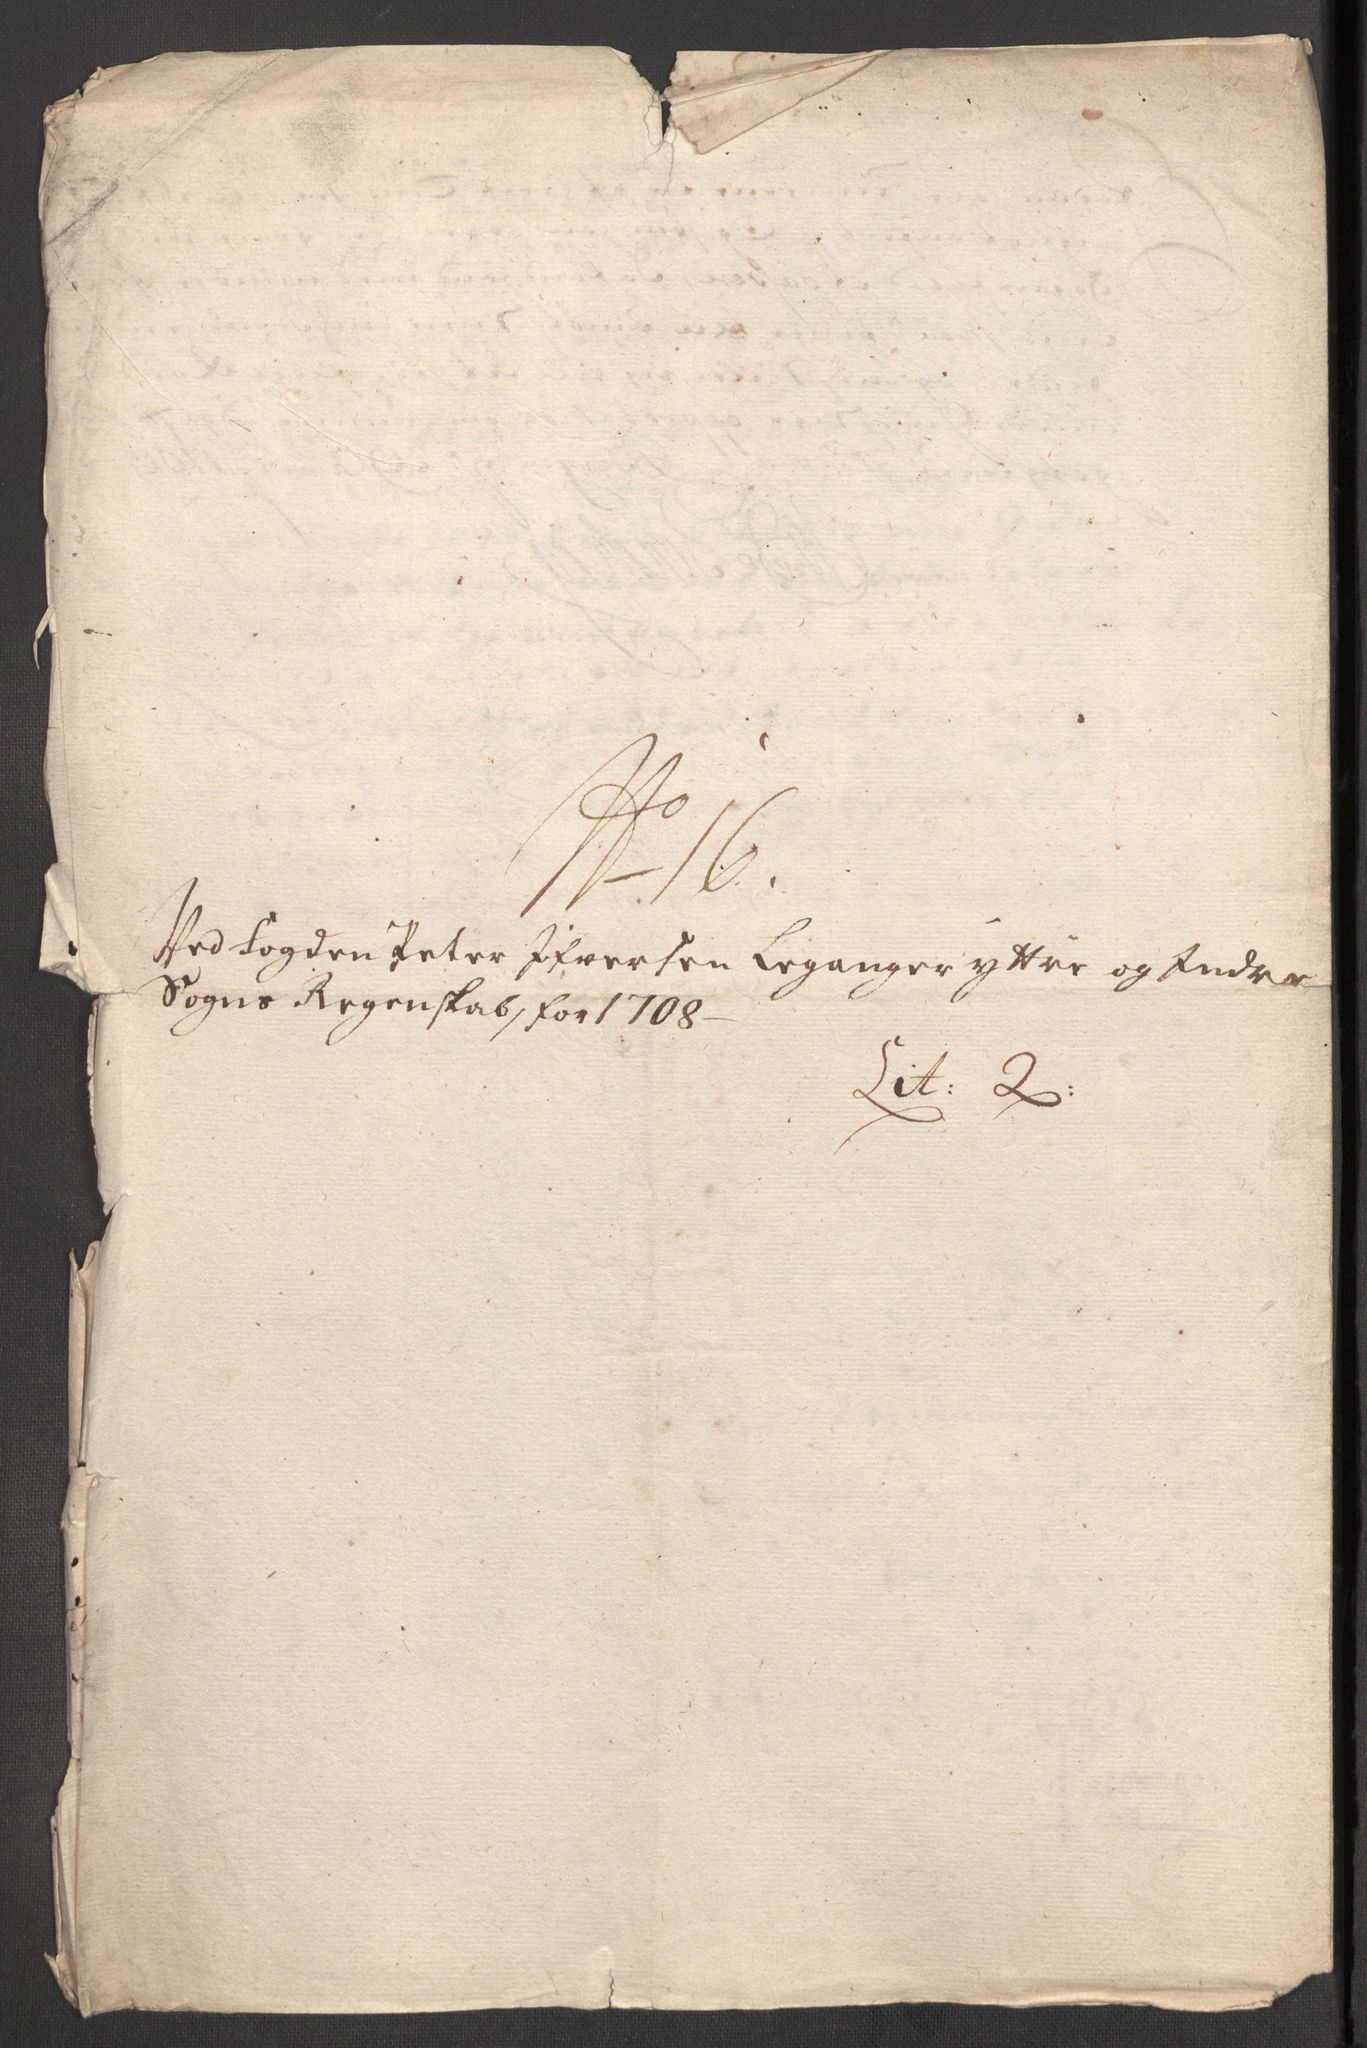 No 16.
Ved Fogden Peter Ifversen Leganger yttre og Indre
Sogns Regenskab, for 1708
Lit: Q: